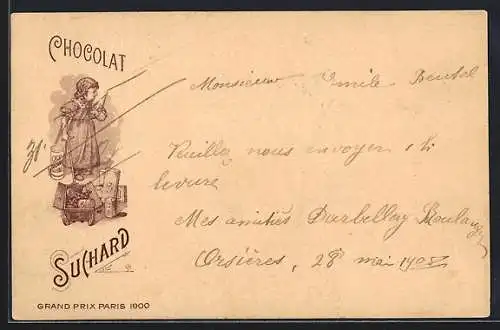 CHOCOLAT
SUCHARD
GRAND PRIX PARIS 1900
Monsieur Emile Beutel
Veuillez nous envoyer 1 k
levure
Mes amitiés Darbellay
Orsières, 28 mai